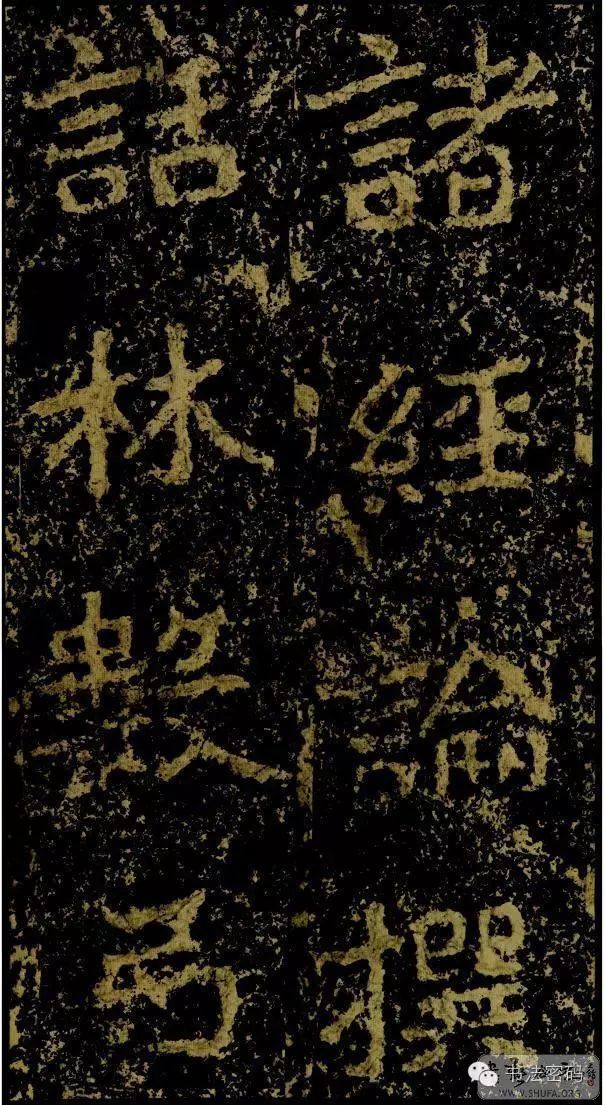 諸經論撰
話林數
书法密码
WWW.SHUFA.ORG